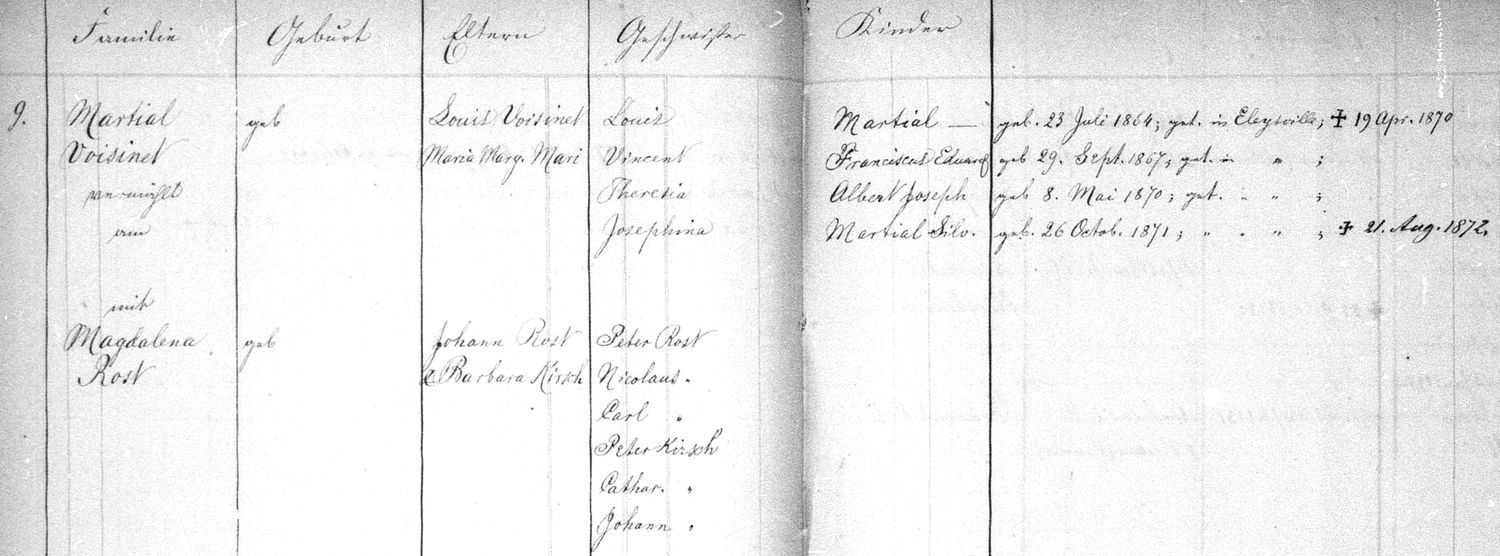 Familie Geburt Eltern Geschwister Kinder
9. Martial geb Louis Voisinet Louis Martial — geb. 23 Juli 1864; get. in Eleysville; ✝ 19 Apr. 1870
Voisinet Maria Marg. Mari Vincent Franciscus Eduard geb 29. Sept. 1867; get. in " ;
vermählt Theresia Albert Joseph geb 8. Mai 1870; get. " " ;
am Josephina Martial Silv. geb. 26 Octob. 1871; " " " ; ✝ 21. Aug. 1872.
mit
Magdalena geb Johann Rost Peter Rost
Rost & Barbara Kirsch Nicolaus "
Carl "
Peter Kirsch
Cathar. "
Johann "